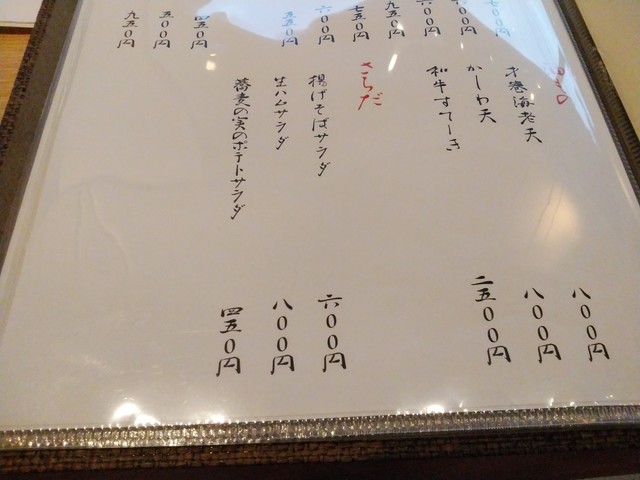 七〇〇円
六〇〇円
九五〇円
七五〇円
六〇〇円
五五〇円
四五〇円
五〇〇円
九五〇円
才巻海老天
八〇〇円
かしわ天
八〇〇円
和牛すてーき
二五〇〇円
さらだ
揚げそばサラダ
六〇〇円
生ハムサラダ
八〇〇円
蕎麦の実のポテトサラダ
四五〇円
八〇〇円